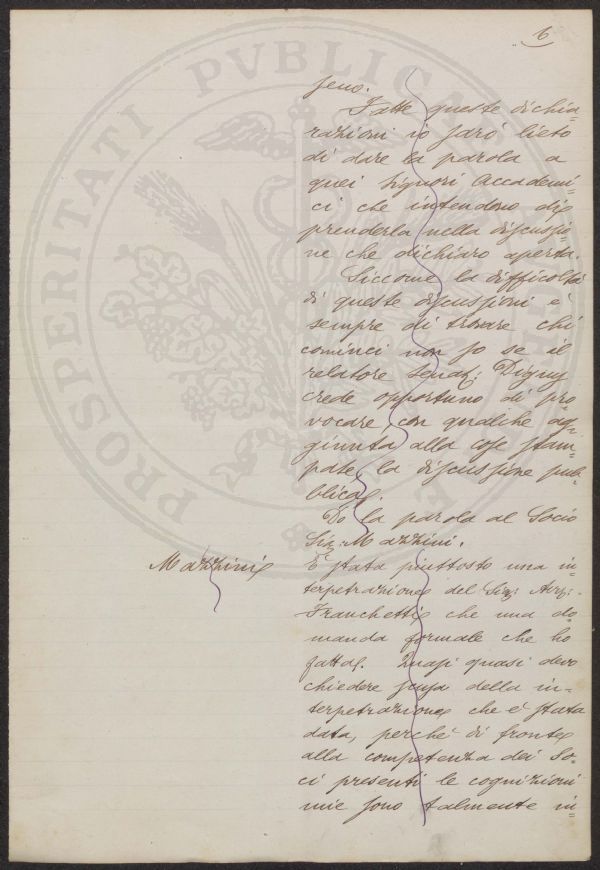 6
seno.
Fatte queste dichia-
razioni io sarò lieto
di dare la parola a
quei Signori Accademi-
ci che intendono di
prenderla nella discussio-
ne che dichiaro aperta.
Siccome la difficoltà
di queste discussioni è
sempre di trovare chi
cominci non so se il
relatore Senat: Digny
crede opportuno di pro-
vocare, con qualche ag-
giunta alla cose stam-
pate, la discussione pub-
blica.
Do la parola al Socio
Sig: Mazzini.
Mazzini
È stata piuttosto una in-
terpetrazione del Sig: Avv:
Franchetti che una do-
manda formale che ho
fatta. Quasi quasi devo
chiedere scusa della in-
terpetrazione che è stata
data, perché di fronte
alla competenza dei So-
ci presenti le cognizioni
mie sono talmente in-
PROSPERITATI PVBLICAE